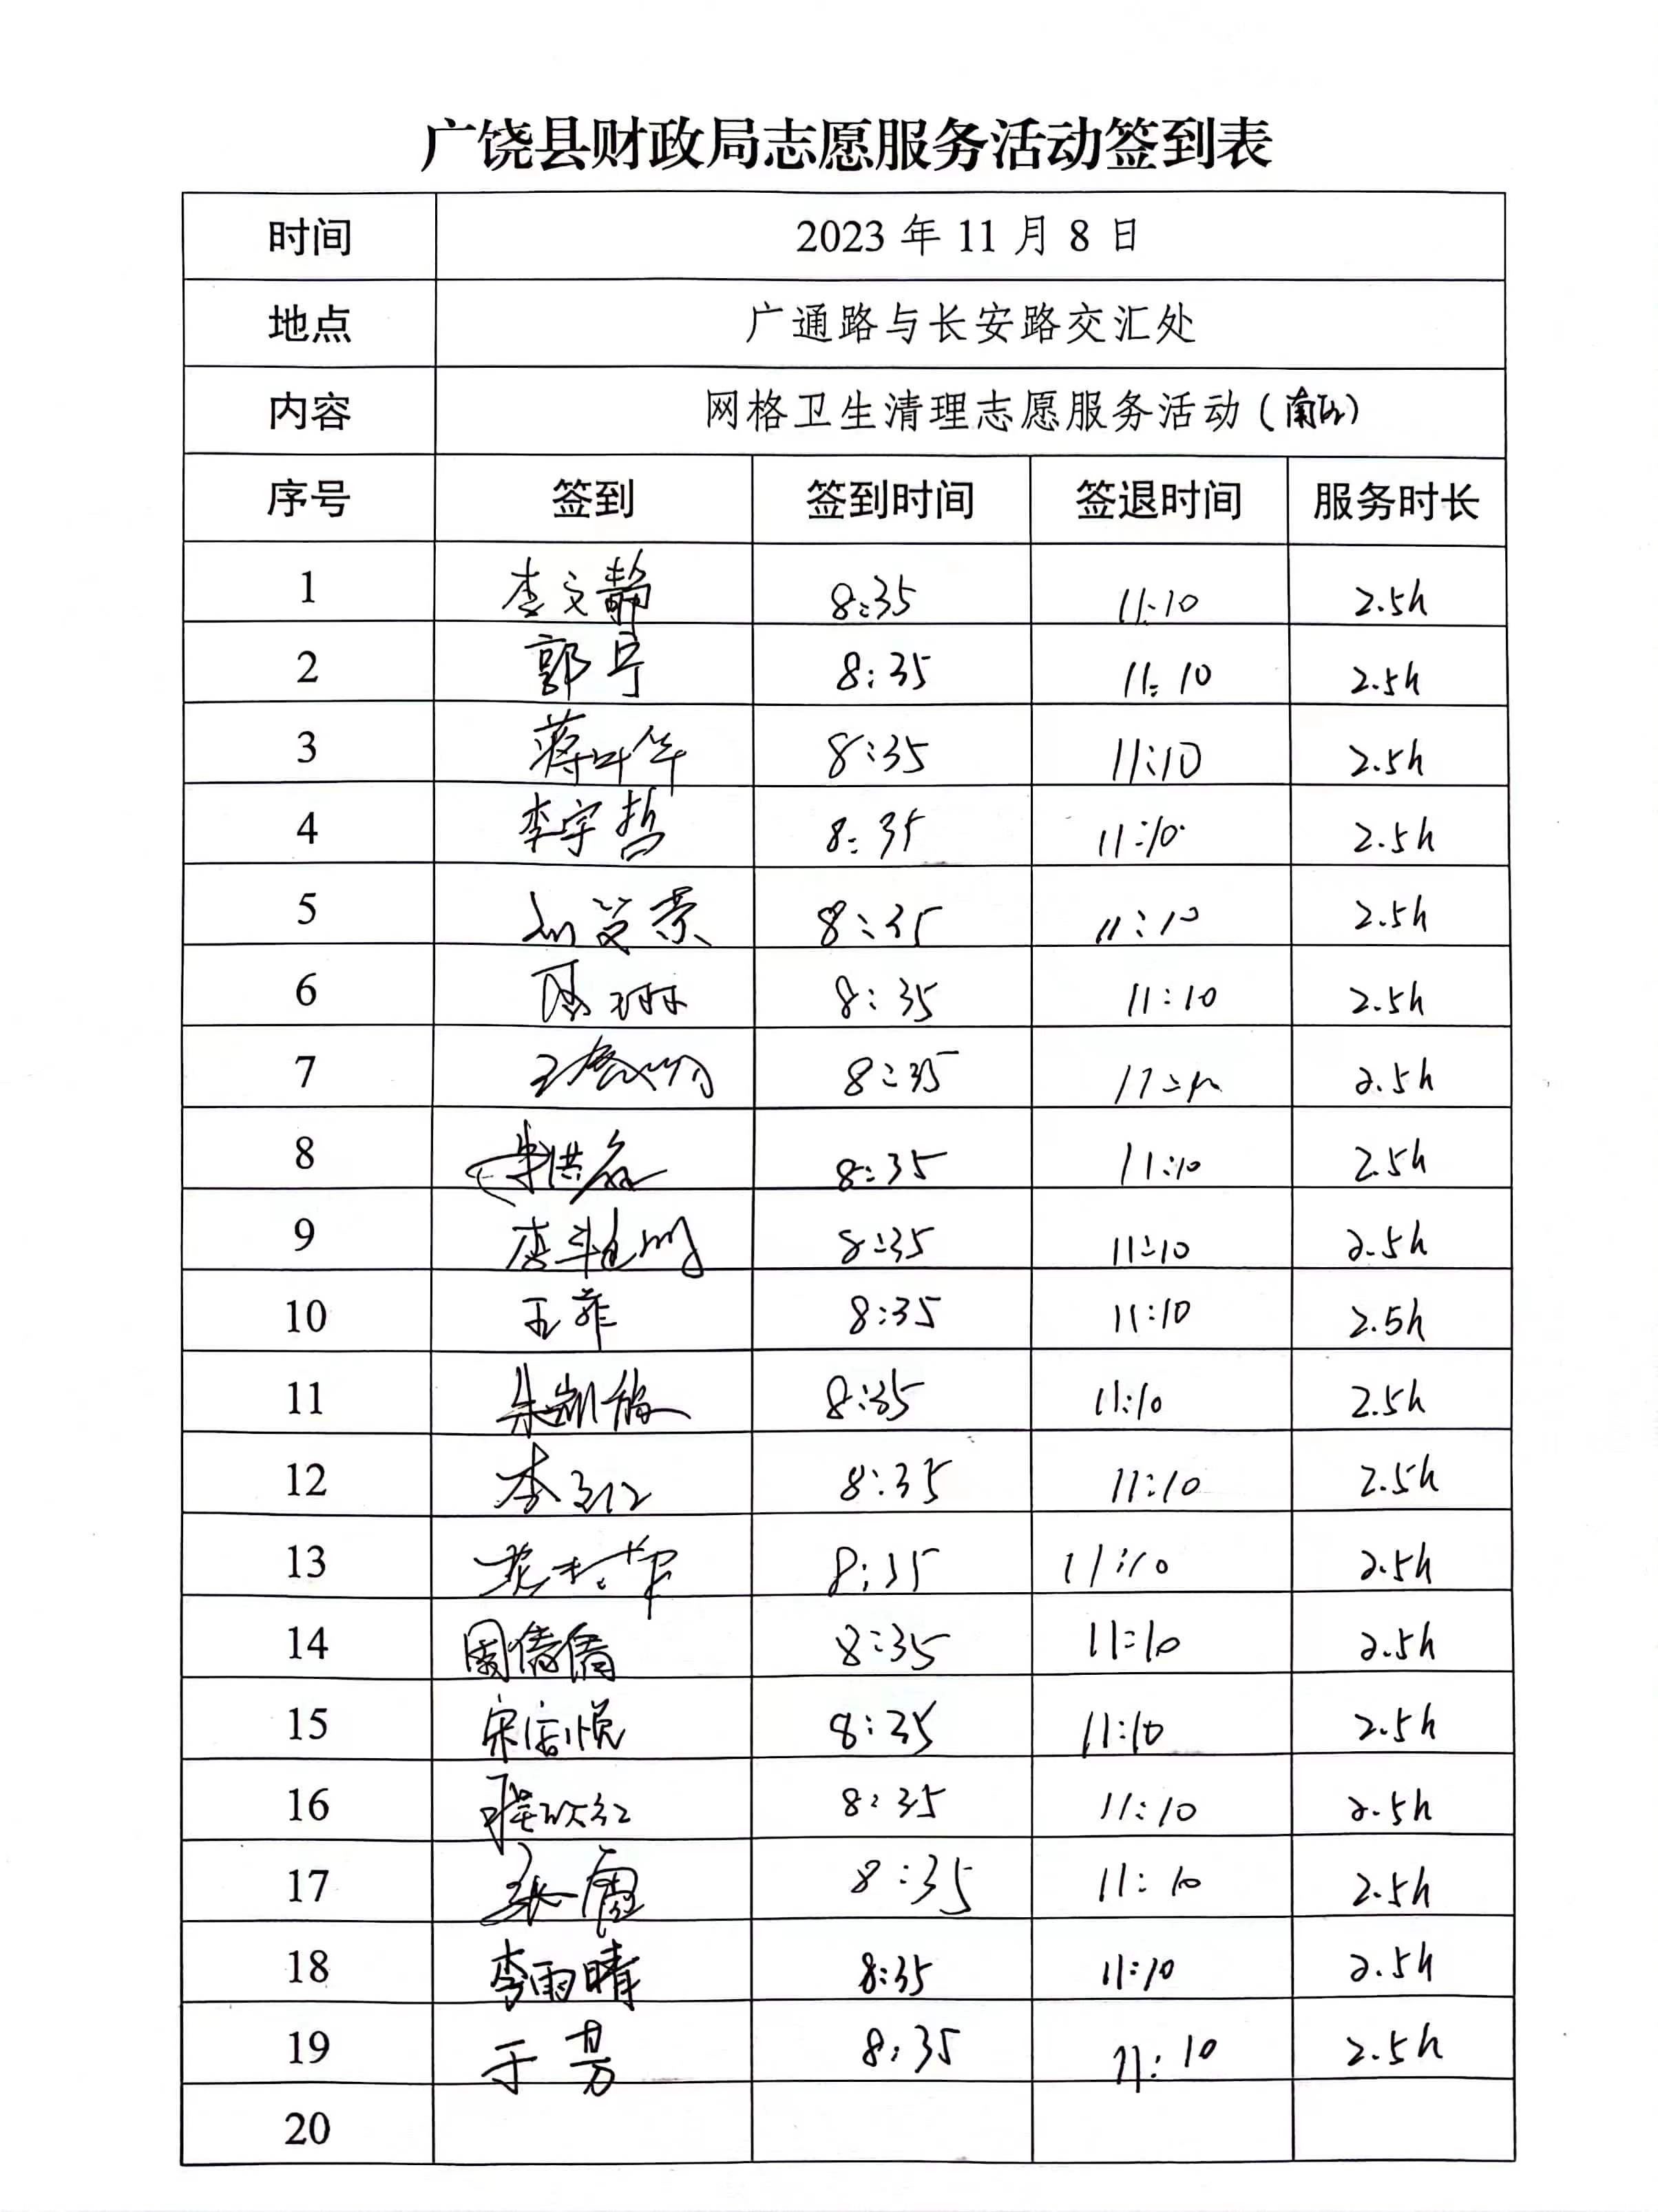 广饶县财政局志愿服务活动签到表
时间 2023 年 11 月 8 日
地点 广通路与长安路交汇处
内容 网格卫生清理志愿服务活动(南环)
序号 签到 签到时间 签退时间 服务时长
1 李文静 8:35 11:10 2.5h
2 郭宁 8:35 11:10 2.5h
3 蒋叶华 8:35 11:10 2.5h
4 李宇哲 8:35 11:10 2.5h
5 8:35 11:10 2.5h
6 8:35 11:10 2.5h
7 8:35 11:10 2.5h
8 8:35 11:10 2.5h
9 8:35 11:10 2.5h
10 王菲 8:35 11:10 2.5h
11 8:35 11:10 2.5h
12 李红 8:35 11:10 2.5h
13 8:35 11:10 2.5h
14 周倩倩 8:35 11:10 2.5h
15 8:35 11:10 2.5h
16 8:35 11:10 2.5h
17 张霞 8:35 11:10 2.5h
18 李雨晴 8:35 11:10 2.5h
19 8:35 11:10 2.5h
20